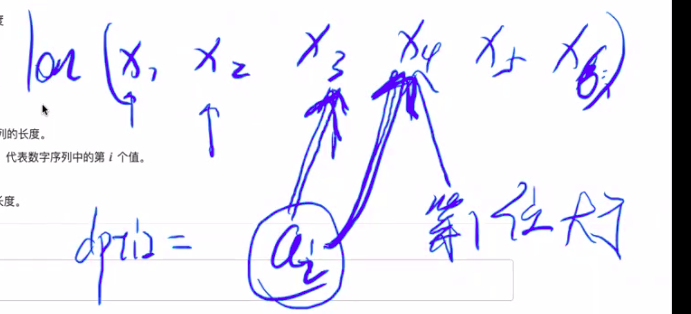 度
len (x₁ x₂ x₃ x₄ x₅ x₆)
列的长度。
代表数字序列中的第 i 个值。
长度。
dp[i] = aᵢ 第1个位大于